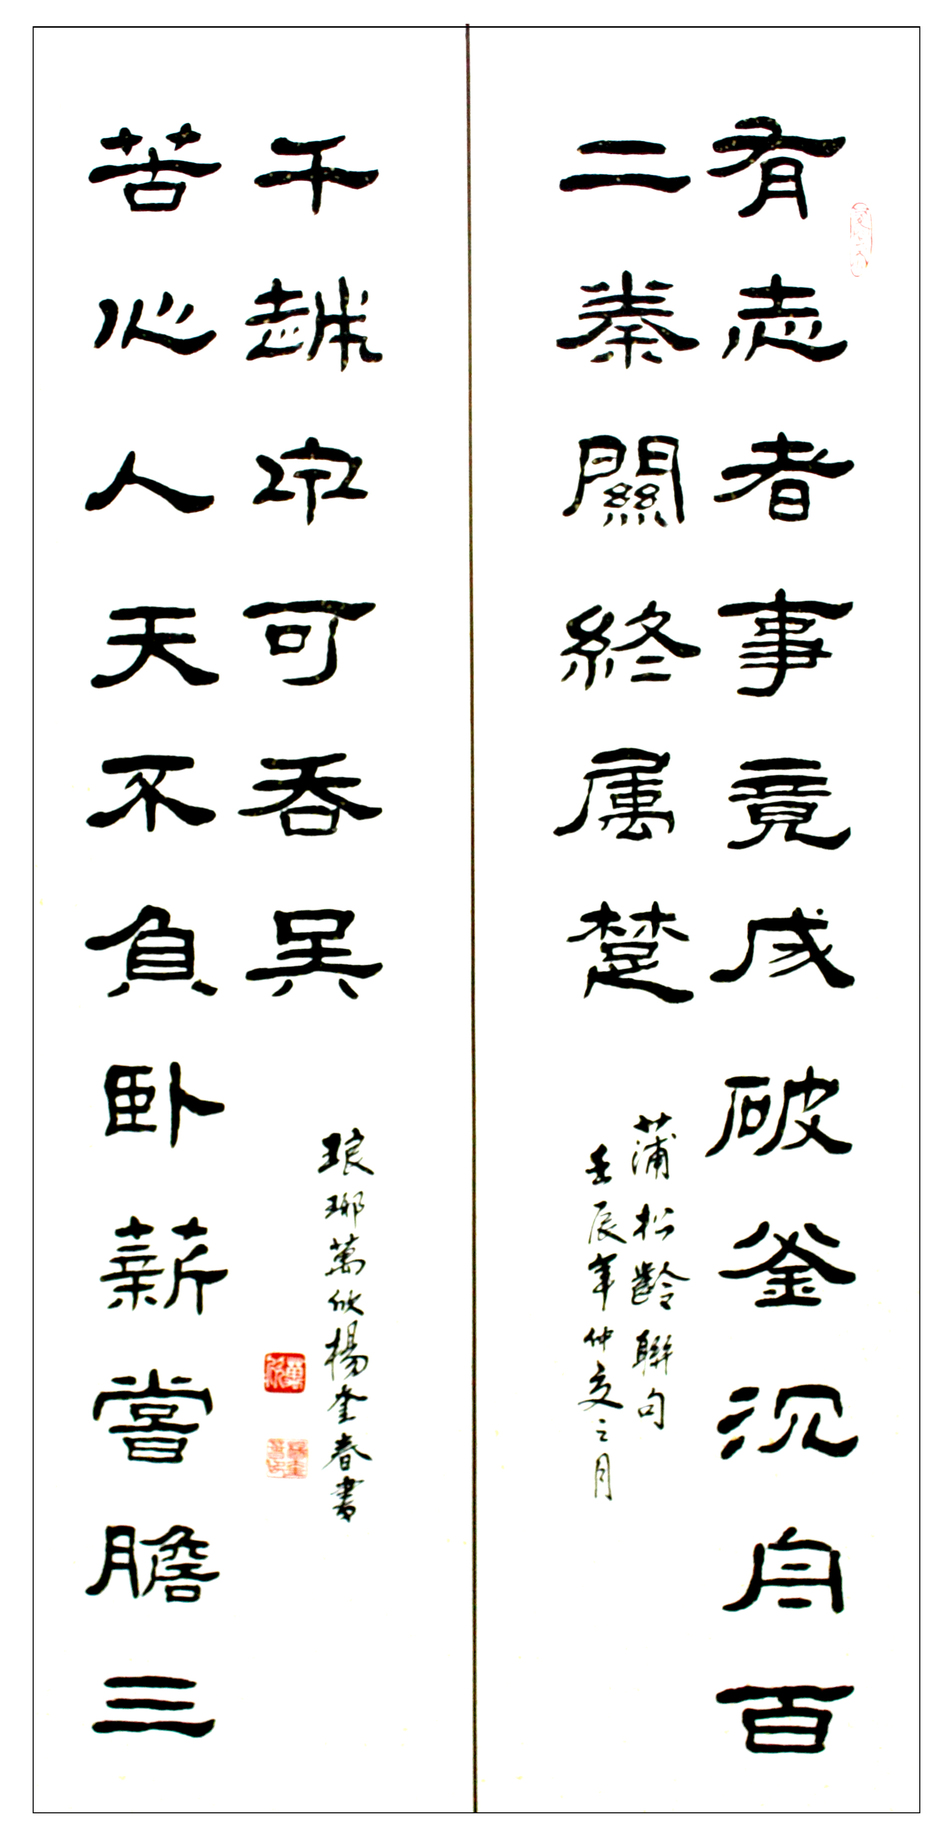 有志者事竟成破釜沉舟百
二秦關終属楚
蒲松齡聯句
壬辰年仲夏之月
苦心人天不負卧薪嘗膽三
千越甲可吞吳
琅琊萬楊奎春書